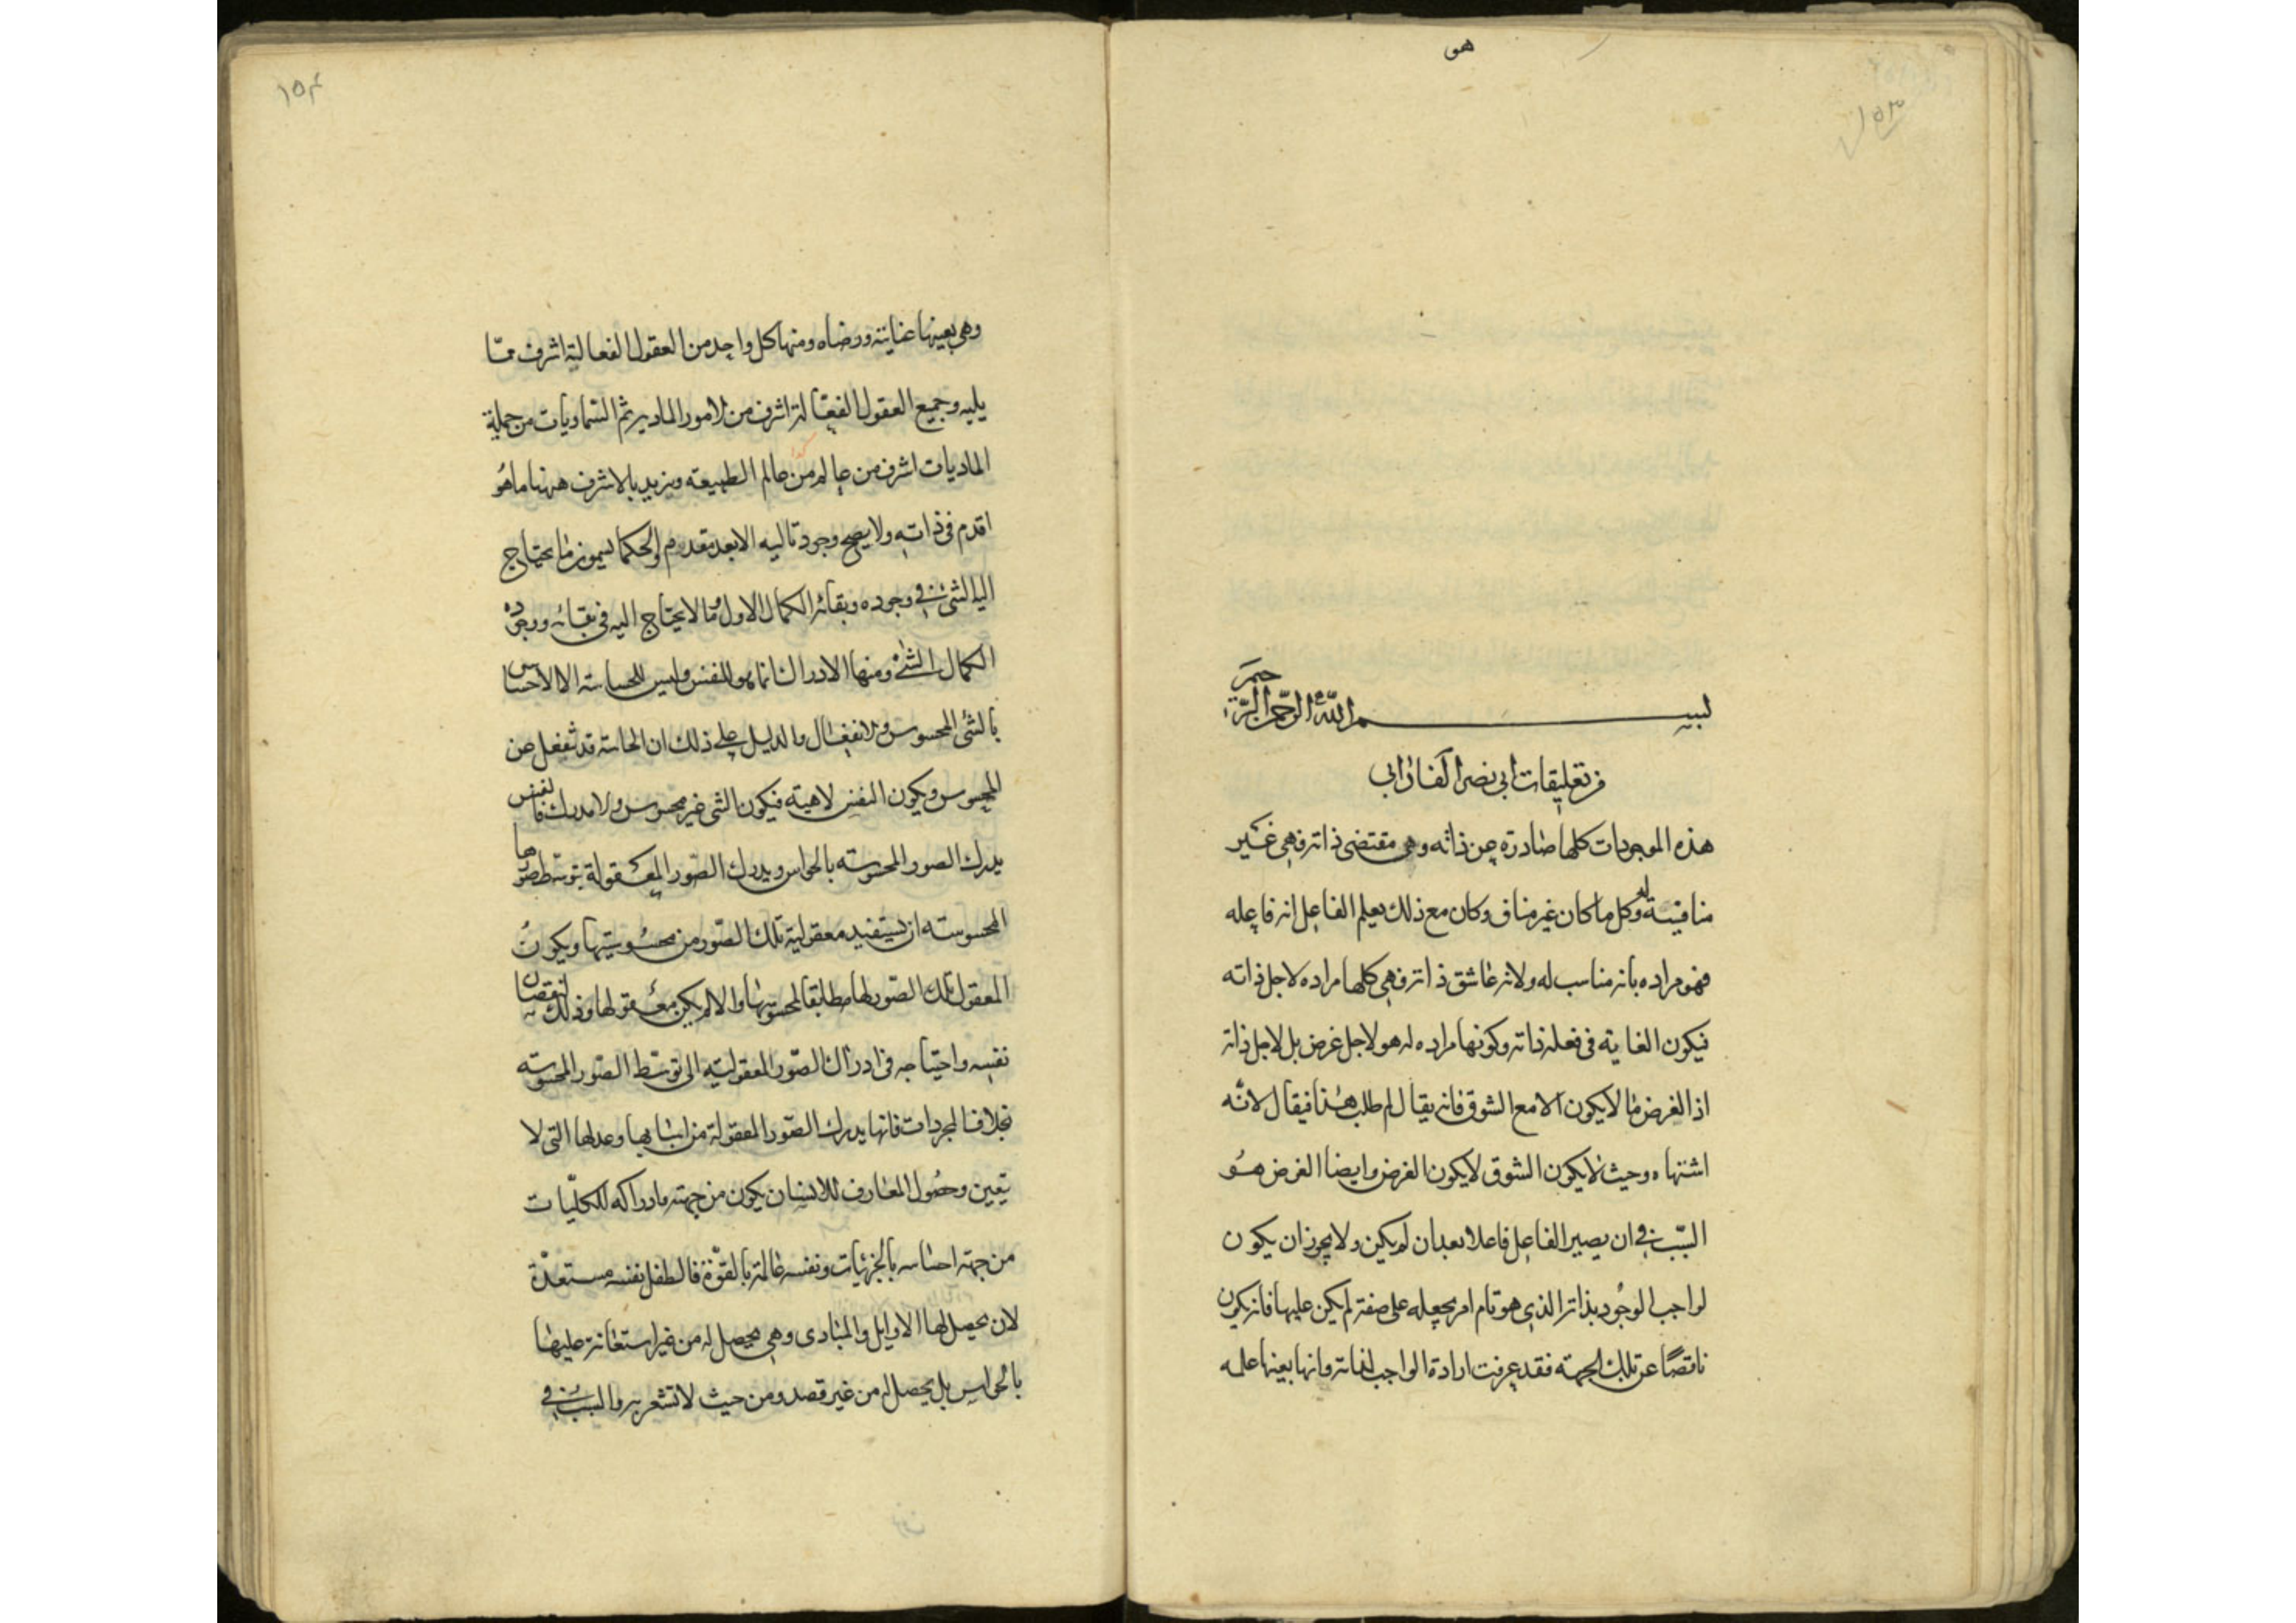 هو
١٥٣
بسم الله الرحمن الرحيم
من تعليقات ابي نصر الفارابي
هذه الموجودات كلها صادرة عن ذاته وهى مقتضى ذاته فهى غير
منافية له وكل ما كان غير مناف وكان مع ذلك يعلم الفاعل انه فاعله
فهو مراده بانه مناسب له ولانه عاشق ذاته فهى كلها مراده لاجل ذاته
فيكون الغاية فى فعله ذاته وكونها مراده له هو لاجل غرض بل لاجل ذاته
اذ الغرض ما لا يكون الا مع الشوق فانه يقال لم طلب هذا فيقال لانه
اشتهاه وحيث لا يكون الشوق لا يكون الغرض وايضا الغرض هو
السبب فى ان يصير الفاعل فاعلا بعد ان لم يكن ولا يجوز ان يكون
لواجب الوجود بذاته الذى هو تام امر يجعله على صفة لم يكن عليها فانه يكون
ناقصا عن تلك الجهة فقد عرفت ارادة الواجب لذاته وانها بعينها علمه
١٥٤
وهى بعينها عنايته ورضاه ومنها كل واحد من العقول الفعالية اشرف مما
يليه وجميع العقول الفعالة اشرف من الامور المادية ثم السماويات من جملة
الماديات اشرف من عالم من عالم الطبيعة ويزيد بالاشرف ههنا ما هو
اقدم فى ذاته ولا يصح وجود تاليه الا بعد تقدم والحكما يسمون ما يحتاج
اليه الشئ فى وجوده وبقائه الكمال الاول وما لا يحتاج اليه فى بقائه ووجوده
الكمال الثانى ومنها الادراك انما هو للنفس وليس للحاسة الا الاحساس
بالشئ المحسوس والانفعال والدليل على ذلك ان الحاسة قد تنفعل عن
المحسوس ويكون النفس لاهية فيكون الشئ غير محسوس ولا مدرك فالنفس
يدرك الصور المحسوسة بالحواس ويدرك الصور المعقولة بتوسط صورها
المحسوسة ان يستفيد معقولية تلك الصور من محسوسيتها ويكون
المعقول تلك الصور لها مطابقا لمحسوسها والا لم يكن معقولها وذلك لنقصان
نفسه واحتياجه فى ادراك الصور المعقولية الى توسط الصور المحسوسة
بخلاف المجردات فانها يدرك الصور المعقولة من اسبابها وعللها التى لا
يتعين وحصول المعارف للانسان يكون من جهة وادراكه للكليات
من جهة احساسه بالجزئيات ونفسه عالمة بالقوة فالطفل نفسه مستعدة
لان يحصل لها الاوايل والمبادى وهى يحصل له من غير استعانة عليها
بالحواس بل يحصل له من غير قصد ومن حيث لا تشعر به والسبب فى